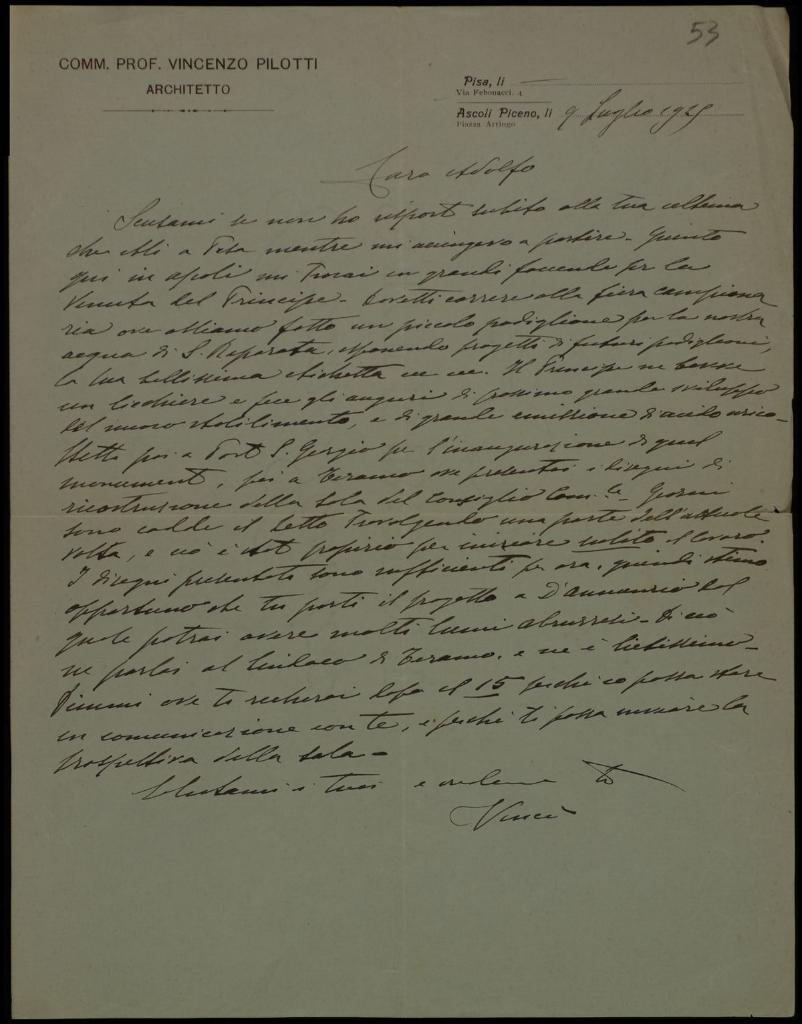 53
COMM. PROF. VINCENZO PILOTTI
ARCHITETTO
Pisa, li
Via Febonacci, 4
Ascoli Piceno, li 9 Luglio 1925
Piazza Arringo
Caro Adolfo
Scusami se non ho rispost subito alla tua ultima
che ebbi a Pisa mentre mi accingevo a partire - Giunto
qui in Ascoli mi trovai in grandi faccende per la
Venuta del Principe - Dovetti correre alla fiera campiona
ria ove abbiamo fatto un piccolo padiglione per la nostra
acqua di S. Reparata, esponendo progetti di futuri padiglioni,
la tua bellissima etichetta ecc ecc. Il Principe ne bevve
un bicchiere e fece gli auguri di prossimo grande sviluppo
del nuovo stabilimento, e di grande emissione d'acido urico -
Stetti poi a Port S. Gergio per l'inaugurazione di quel
monument, poi a Teramo ove presentai i disegni di
ricostruzione della Sala del Consiglio Com.le - Giorni
sono cadde il tetto travolgendo una parte dell'attuale
volta, e ciò è propizio per iniziare subito il lavoro
I disegni presentati sono sufficienti per ora, quindi stimo
opportuno che tu porti il progetto a D'Annunzio dal
quale potrai avere molti lumi abruzzesi - Di ciò
ne parlai al Sindaco di Teramo, e ne è lietissimo -
Dimmi ove ti recherai dopo il 15 perchè io possa stare
in comunicazione con te, e perchè ti possa inviare la
prospettiva della sala -
Salutami i tuoi e credimi tuo